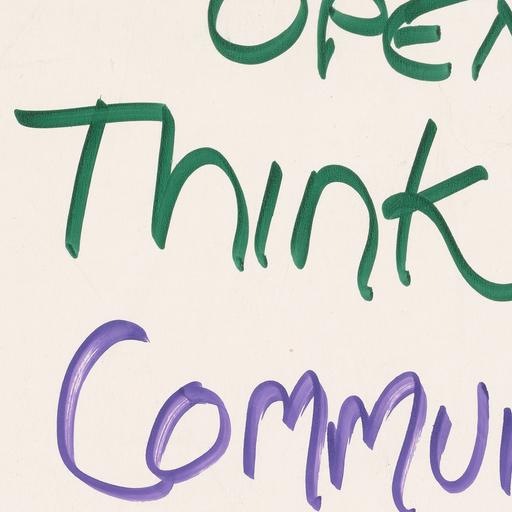 OPEN
Think
Commun